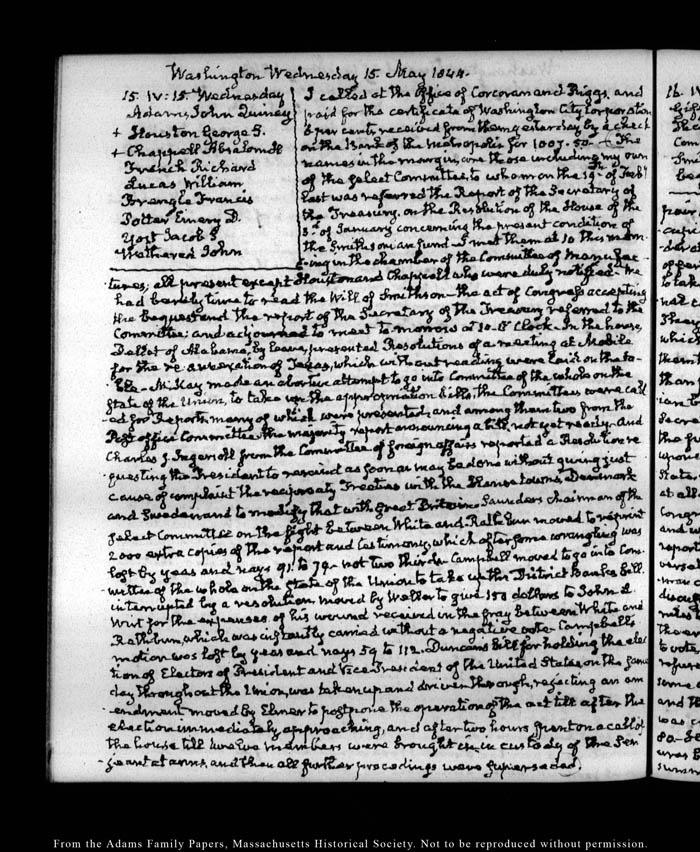 Washington Wednesday 15. May 1844.
15. IV:15. Wednesday
Adams, John Quincy
+ Houston George S.
+ Chappell Absalom H
French Richard
Lucas William
Brengle Francis
Potter Emery D.
Yost Jacob S
Wethered John
I called at the Office of Corcoran and Riggs, and
paid for the certificate of Washington City Corporation
6 per cents, received from them yesterday, by a check
on the Bank of the Metropolis for 1007. 50. The
names in the margin, are those including my own
of the select Committee, to whom on the 19th of Feby
last was referred the Report of the Secretary of
the Treasury, on the Resolution of the House of the
3d of January concerning the present condition of
the Smithsonian fund. I met them at 10 this morn
-ing in the chamber of the Committee of Manufac-
tures; all present except Houston and Chappell who were duly notified. We
had barely time to read the Will of Smithson the act of Congress accepting
the bequest and the report of the Secretary of the Treasury referred to the
Committee; and adjourned to meet to morrow at 10 O'Clock. In the house,
Dellet of Alabama, by leave, presented Resolutions of a meeting at Mobile
for the re-annexation of Texas, which without reading were laid on the ta-
-ble. McKay made an abortive attempt to go into Committee of the whole on the
state of the Union, to take up the appropriation bills, the Committees were call
-ed for Reports, many of which were presented, and among them two from the
Post office Committee, the majority report announcing a bill, not yet ready. And
Charles J. Ingersoll from the Committee of foreign affairs reported a Resolution re
questing the President to rescind as soon as may be done without giving just
cause of complaint the reciprocity Treaties with the Hanse towns, Denmark
and Sweden and to modify that with Great Britain. Saunders chairman of the
select Committee on the fight between White and Rathbun moved to reprint
2000 extra copies of the report and testimony, which after some wrangling was
lost by yeas and nays 91. to 79. not two thirds. Campbell moved to go into Com-
mittee of the whole on the state of the Union to take up the District Banks Bill.
interrupted by a resolution moved by Weller to give 150 dollars to John L.
Wirt for the expenses of his wound received in the fray between White and
Rathbun, which was instantly carried without a negative vote. Campbell's
motion was lost by yeas and nays 59 to 112. Duncan's bill for holding the elec
tion of Electors of President and Vice President of the United States, on the same
day throughout the Union, was taken up and driven through, rejecting an am
-endment moved by Elmer to postpone the operation of the act till after the
election immediately approaching, and after two hours spent on a call of
the house till twelve members were brought in in custody of the Ser
-jeant at arms, and then all further proceedings were superseded.
From the Adams Family Papers, Massachusetts Historical Society. Not to be reproduced without permission.